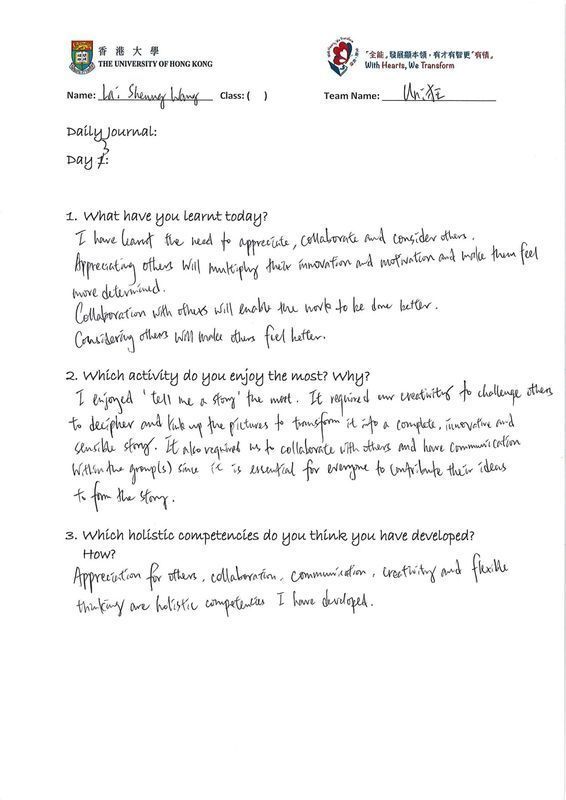 香港大學
THE UNIVERSITY OF HONG KONG
「全能」發展顯本領，有才有智更「有情」
With Hearts, We Transform
Name: Lai Sheung Wang Class: ( ) Team Name:
Daily Journal:
Day 1:
1. What have you learnt today?
I have learnt the need to appreciate, collaborate and consider others.
Appreciating others will multiply their innovation and motivation and make them feel
more determined.
Collaboration with others will enable the work to be done better.
Considering others will make others feel better.
2. Which activity do you enjoy the most? Why?
I enjoyed 'tell me a story' the most. It required our creativity to challenge others
to decipher and link up the pictures to transform it into a complete, innovative and
sensible story. It also required us to collaborate with others and have communication
within the group(s) since it is essential for everyone to contribute their ideas
to form the story.
3. Which holistic competencies do you think you have developed?
How?
Appreciation for others, collaboration, communication, creativity and flexible
thinking are holistic competencies I have developed.